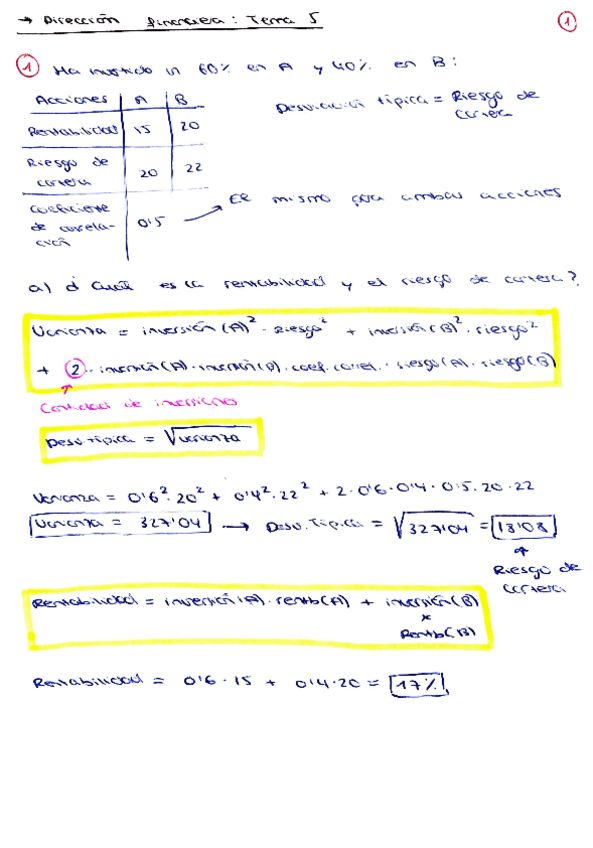 → Dirección financiera: Tema 5
1
1 Ha invertido un 60% en A y 40% en B:
Acciones A B
Rentabilidad 15 20
Riesgo de cartera 20 22
Coeficiente de correlación 0'5 → Es mismo para ambas acciones
Desviación típica = Riesgo de cartera
a) ¿Cuál es la rentabilidad y el riesgo de cartera?
Varianza = inversión (A)² · Riesgo² + inversión (B)² · riesgo²
+ 2 · inversión(A) · inversión(B) · coef. correl. · riesgo(A) · riesgo(B)
Cantidad de inversiones
Desv. típica = √varianza
Varianza = 0'6² · 20² + 0'4² · 22² + 2 · 0'6 · 0'4 · 0'5 · 20 · 22
Varianza = 327'04 → Desv. Típica = √327'04 = 18'08
Riesgo de
cartera
Rentabilidad = inversión (A) · rentb(A) + inversión (B)
x
Rentb(B)
Rentabilidad = 0'6 · 15 + 0'4 · 20 = 17%